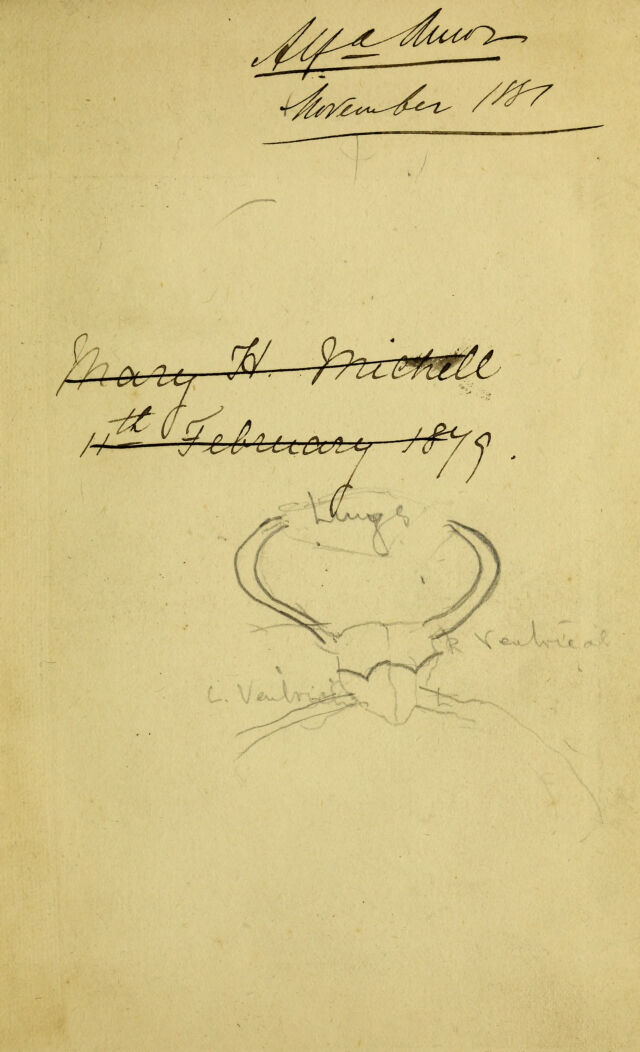 November 1881
Mary H. Michell
11th February 1879.
Lungs
R Ventrical
L. Ventricl